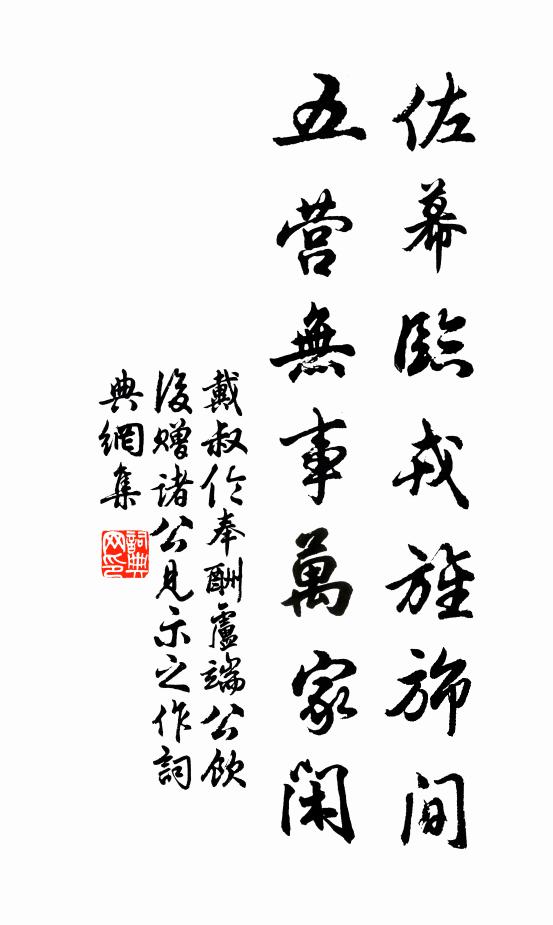 佐幕臨戎旌旆間
五營無事萬家閑
戴叔伦奉酬盧端公飲
後贈諸公見示之作詞
典網集
詞典网印